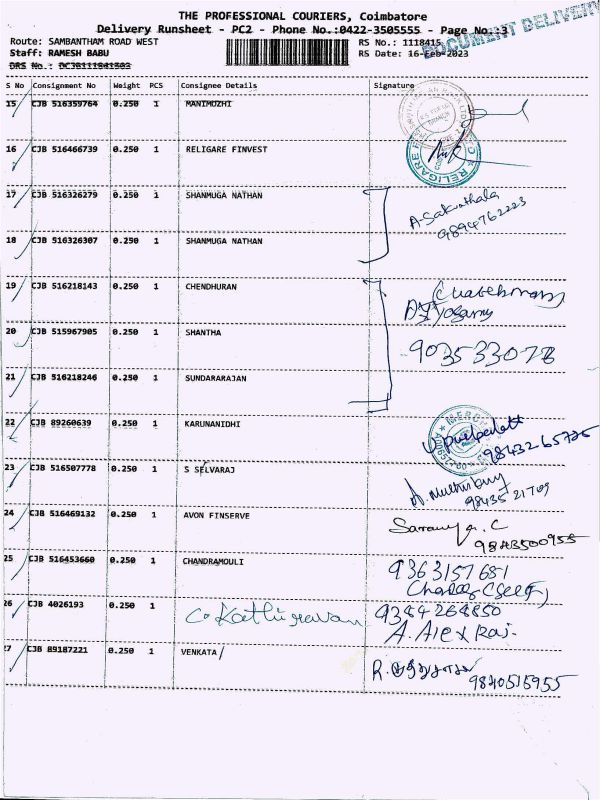 THE PROFESSIONAL COURIERS, Coimbatore
Delivery Runsheet - PC2 - Phone No.:0422-3505555 - Page No.:3
DOCUMENT DELIVERY
Route: SAMBANTHAM ROAD WEST RS No.: 1118415
Staff: RAMESH BABU RS Date: 16-Feb-2023
DRS No.:
S No Consignment No Weight PCS Consignee Details Signature
15 CJB 516359764 0.250 1 MANIMOZHI
16 CJB 516466739 0.250 1 RELIGARE FINVEST
RELIGARE
17 CJB 516326279 0.250 1 SHANMUGA NATHAN
9894762223
18 CJB 516326307 0.250 1 SHANMUGA NATHAN
19 CJB 516218143 0.250 1 CHENDHURAN
20 CJB 515967905 0.250 1 SHANTHA
21 CJB 516218246 0.250 1 SUNDARARAJAN
22 CJB 89260639 0.250 1 KARUNANIDHI
23 CJB 516507778 0.250 1 S SELVARAJ
24 CJB 516469132 0.250 1 AVON FINSERVE
Saranya. C
9843500955
25 CJB 516453660 0.250 1 CHANDRAMOULI 9363157681
26 CJB 4026193 0.250 1 C. Kathiravan 9344264850
A. Alex Raj.
27 CJB 89187221 0.250 1 VENKATA /
9840515955